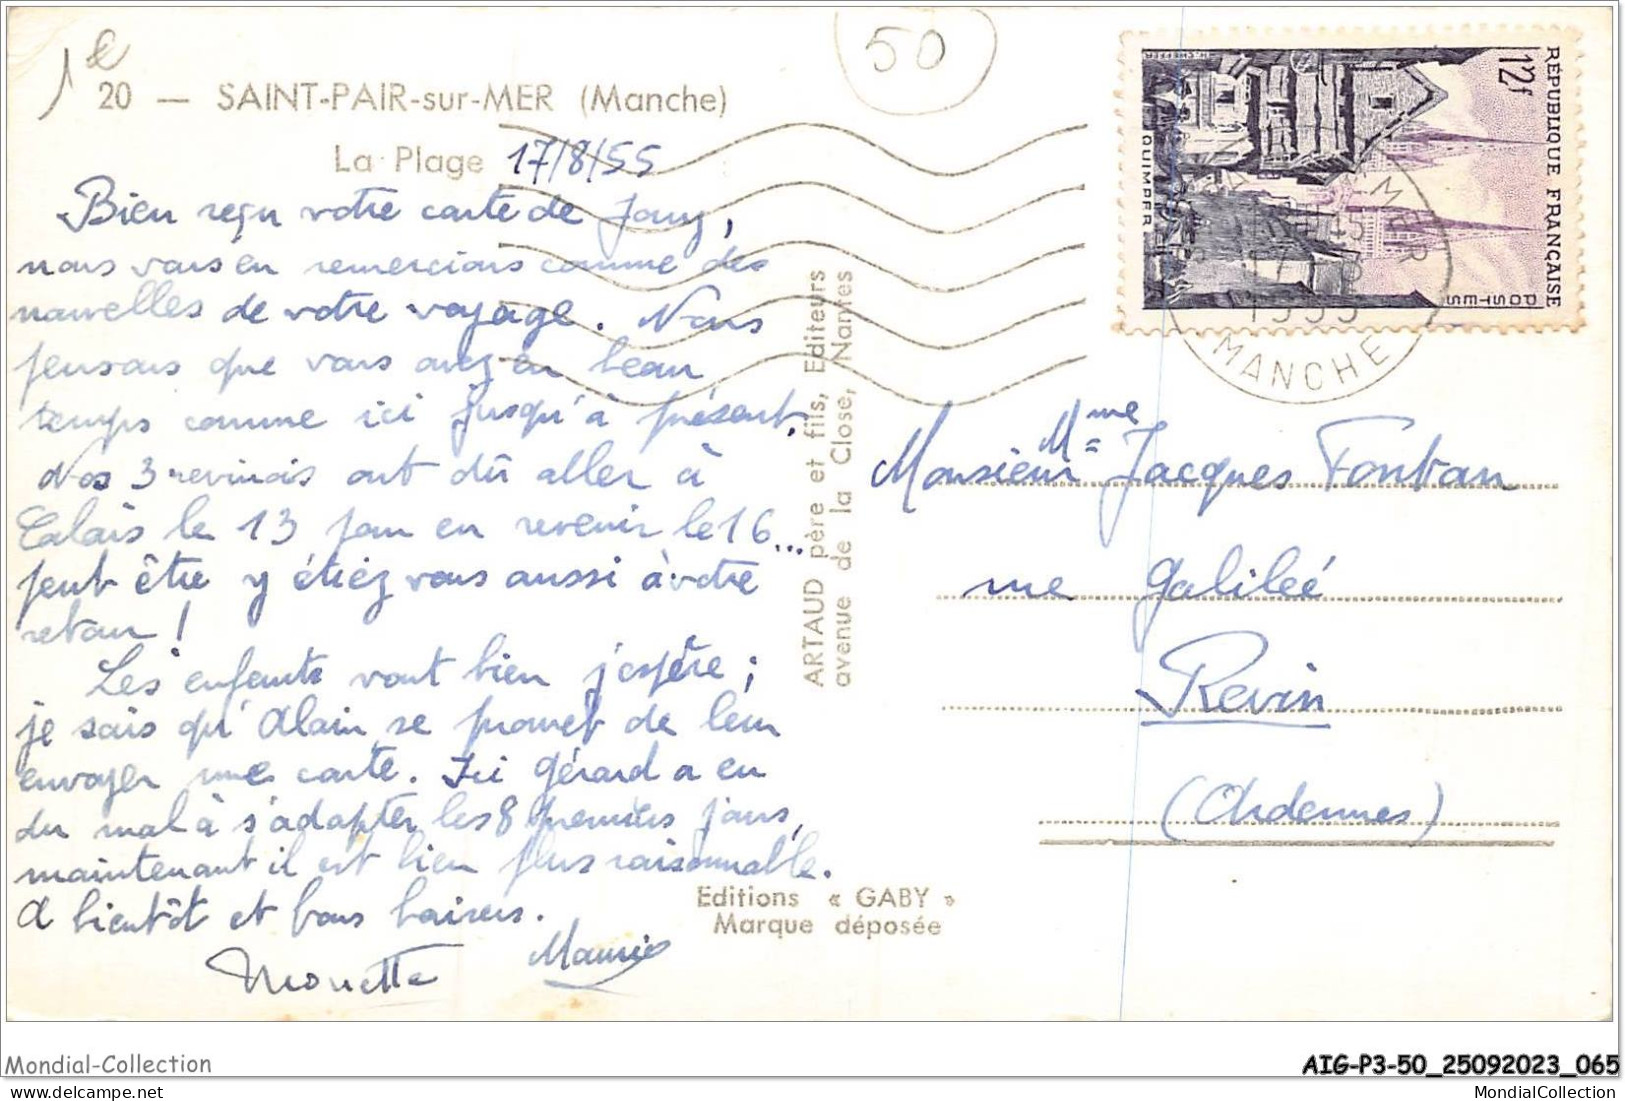 1 e
50
20 — SAINT-PAIR-sur-MER (Manche)
La Plage 17/8/55
Bien reçu votre carte de Jouy,
nous vous en remercions comme des
nouvelles de votre voyage. Nous
pensons que vous avez eu beau
temps comme ici jusqu'à présent.
Nos 3 revinois ont dû aller à
Calais le 13 pour en revenir le 16...
peut être y étiez vous aussi à votre
retour !
Les enfants vont bien j'espère ;
je sais qu'Alain se promet de leur
envoyer une carte. Ici Gérard a eu
du mal à s'adapter les 8 premiers jours,
maintenant il est bien plus raisonnable.
A bientôt et bons baisers.
Maurice
ARTAUD père et fils, Editeurs
avenue de la Close, Nantes
Editions « GABY »
Marque déposée
RÉPUBLIQUE FRANÇAISE
POSTES
12f
QUIMPER
H. CHEFFER
MER
1955
MANCHE
Mme
Monsieur Jacques Fontan
rue Galilée
Revin
(Ardennes)
Mondial-Collection
AIG-P3-50_25092023_065
MondialCollection